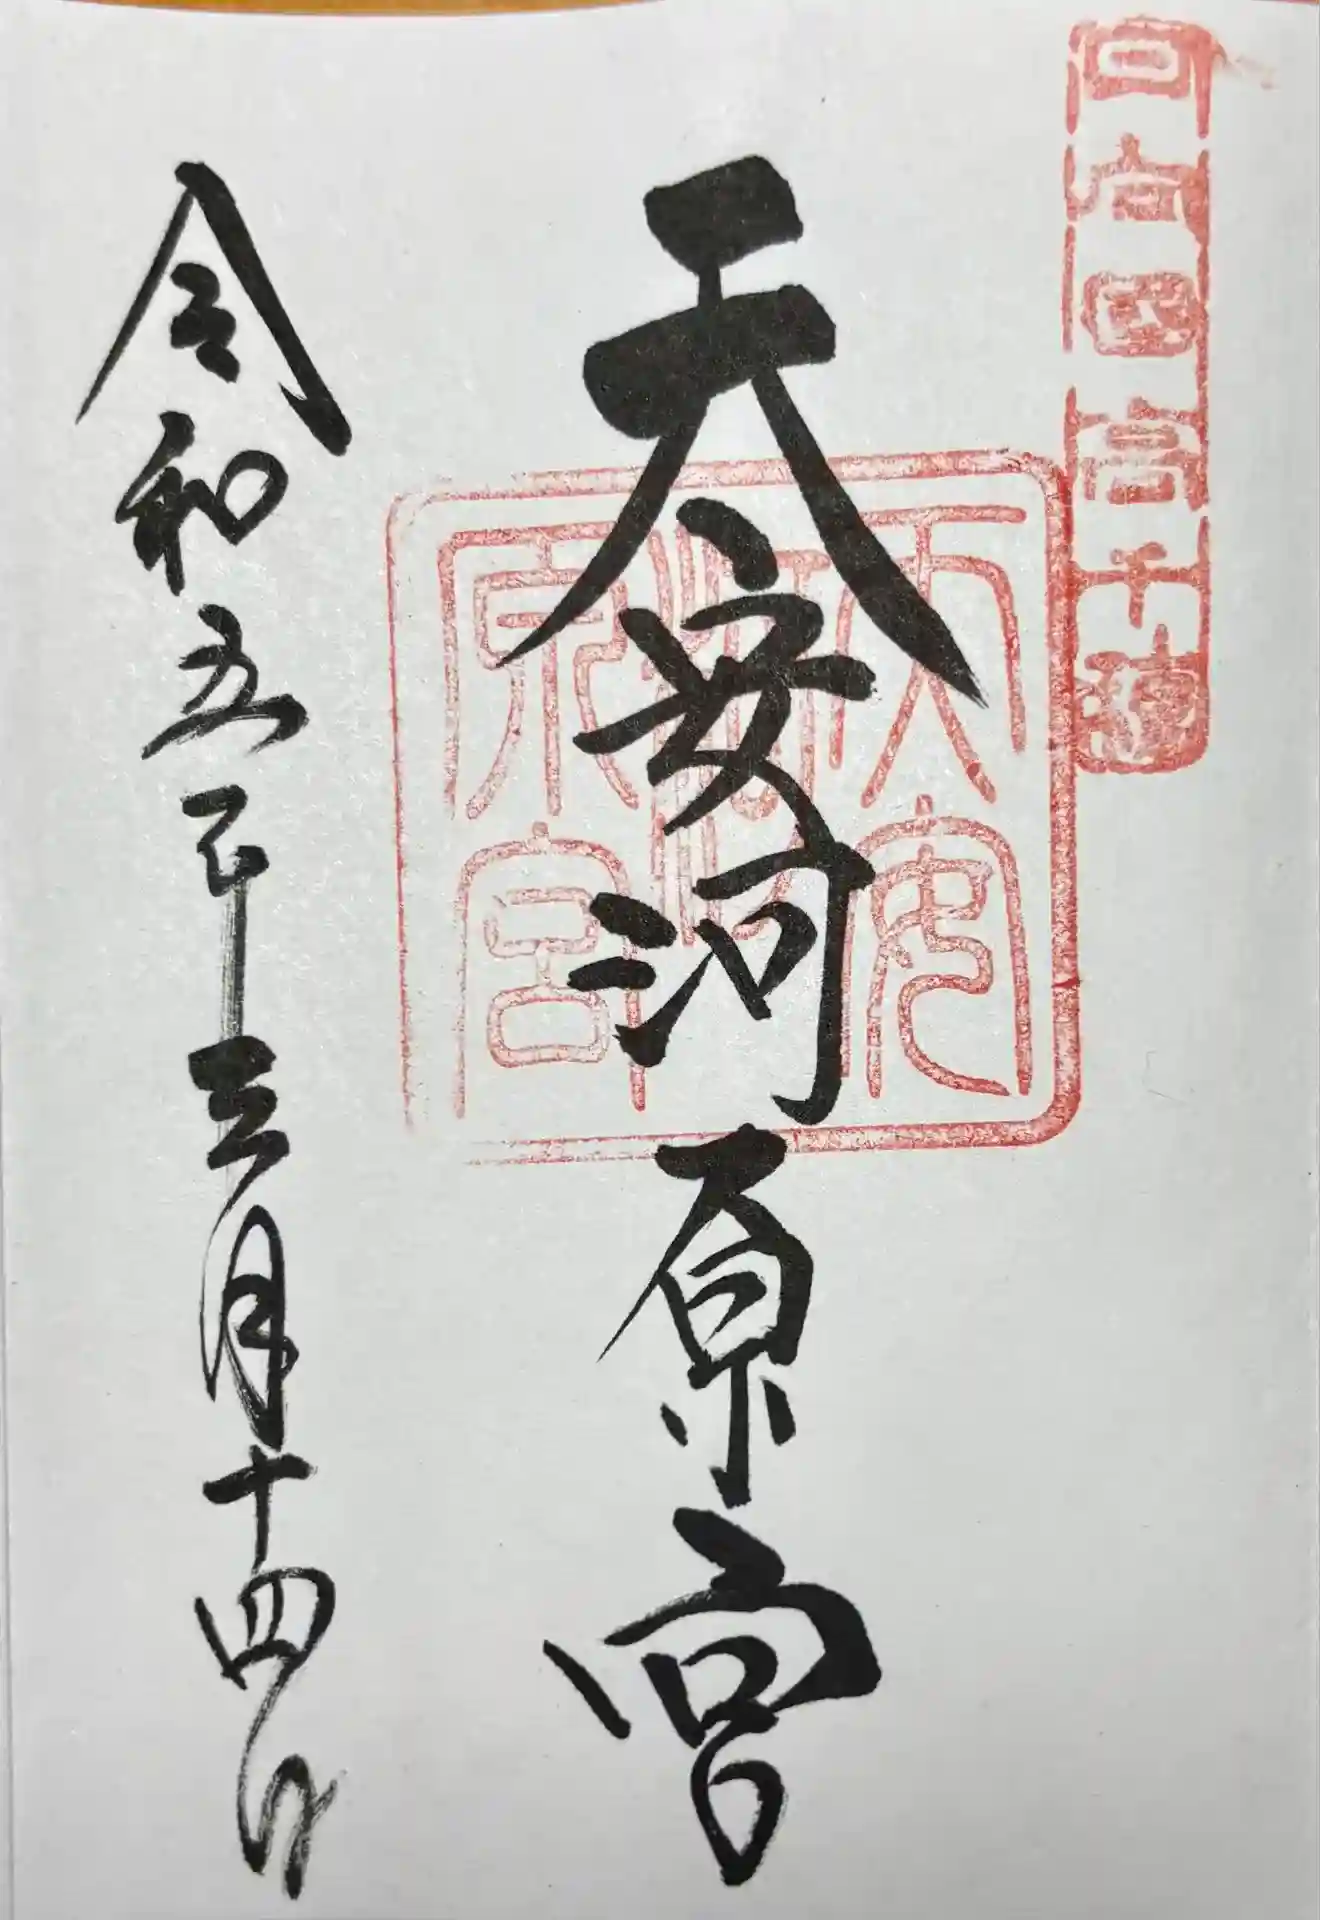 日向国高千穂
天安河原宮
天安河原宮
令和五年三月十四日